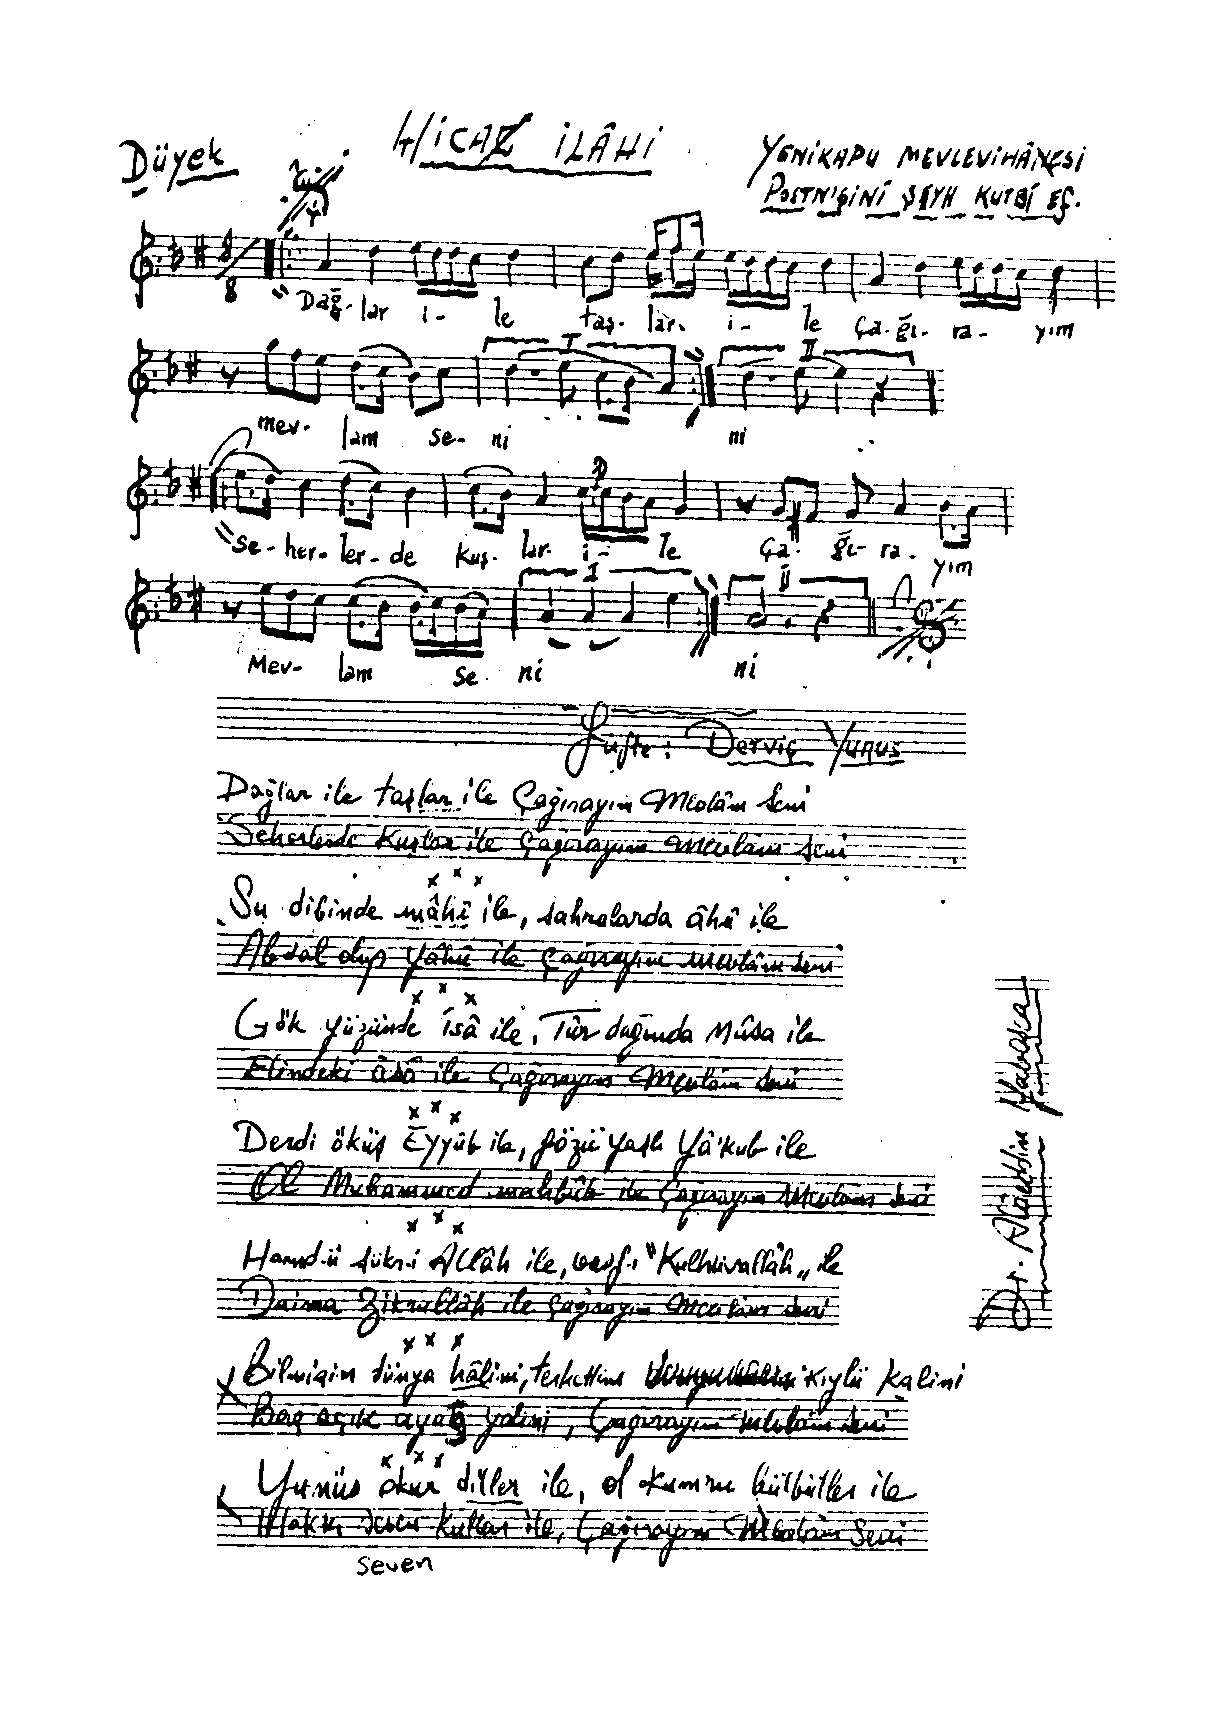 Düyek
HİCAZ İLÂHİ
YENİKAPU MEVLEVİHÂNESİ
POSTNİŞİNİ ŞEYH KUTBÎ Ef.
8
8
Dağ-lar i-le taş-lar-i-le ça-ğı-ra-yım
I II
mev-lam se-ni ni
Se-her-ler-de kuş-lar-i-le ça-ğı-ra-yım
I II
Mev-lam se-ni ni
Güfte: Derviş Yunus
Dağlar ile taşlar ile Çağırayım Mevlâm Seni
Seherlerde Kuşlar ile Çağırayım Mevlâm seni
x x x
Su dibinde mâhî ile, sahralarda âhû ile
Abdal olup Yâhû ile Çağırayım mevlâm seni
x x x
Gök yüzünde Îsâ ile, Tûr dağında Mûsa ile
Elindeki âsâ ile Çağırayım Mevlâm seni
x x x
Derdi öküş Eyyûb ile, gözü yaşlı Yâ'kub ile
Ol Muhammed mahbûb ile Çağırayım Mevlâm seni
x x x
Hamd-ü şükr-i Allâh ile, vasf-ı "Kulhüvallâh„ ile
Daima Zikrullâh ile Çağırayım Mevlâm seni
x x x
Bilmişim dünya hâlini, terkettim kıylü kalini
Baş açık ayağ yalını, Çağırayım Mevlâm seni
x x x
Yunüs okur diller ile, ol kumru bülbüller ile
Hakkı seven kullar ile, Çağırayım Mevlâm Seni
seven
Dr. Alâeddin Yavaşca